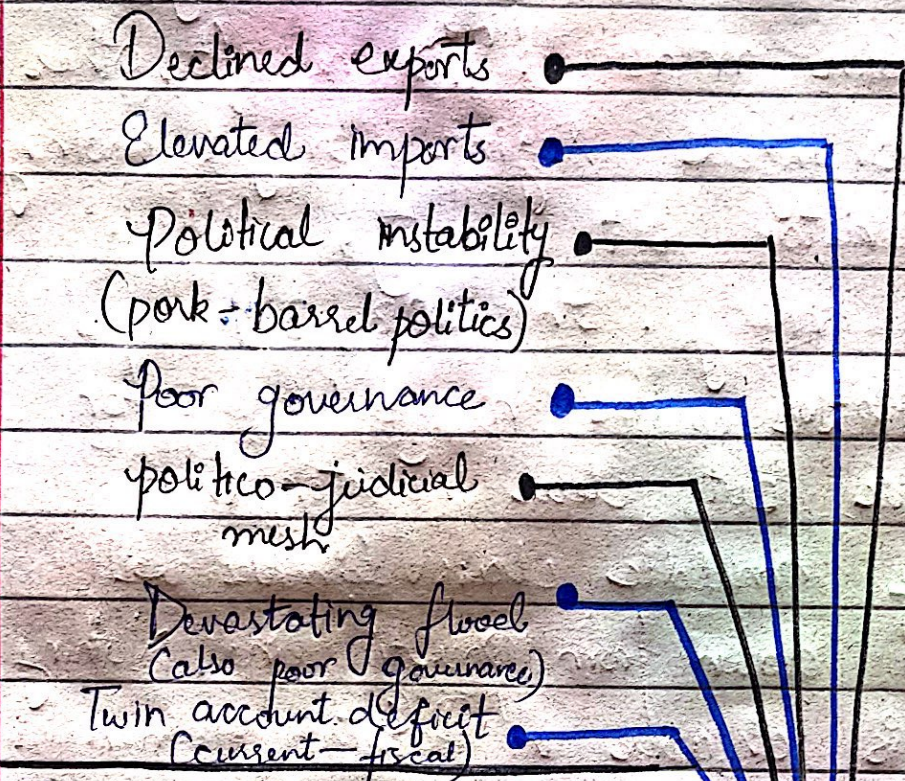 Declined exports
Elevated imports
Political instability
(pork-barrel politics)
Poor governance
politico-judicial
mesh
Devastating flood
(also poor governance)
Twin account deficit
(current-fiscal)